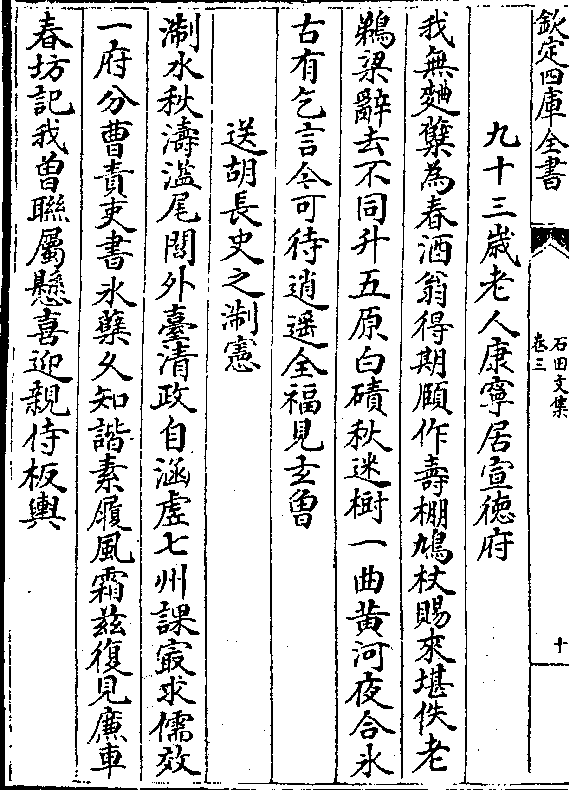 欽定四庫全書
石田文集
卷三
十
九十三歲老人康寧居宣德府
我無麴糵為春酒翁得期頤作壽棚鳩杖賜來堪佚老
鵜梁辭去不同升五原白磧秋迷樹一曲黄河夜合氷
古有乞言今可待逍遥全福見玄曾
送胡長史之淛憲
淛水秋濤溢尾閭外臺清政自涵虚七州課冣求儒效
一府分曹責吏書氷糵久知諧素履風霜兹復見廉車
春坊記我曽聯屬懸喜迎親侍板輿